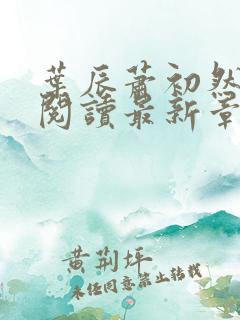 葉辰蕭初然
閱讀最新章
黄荊坪
未经同意禁止转载